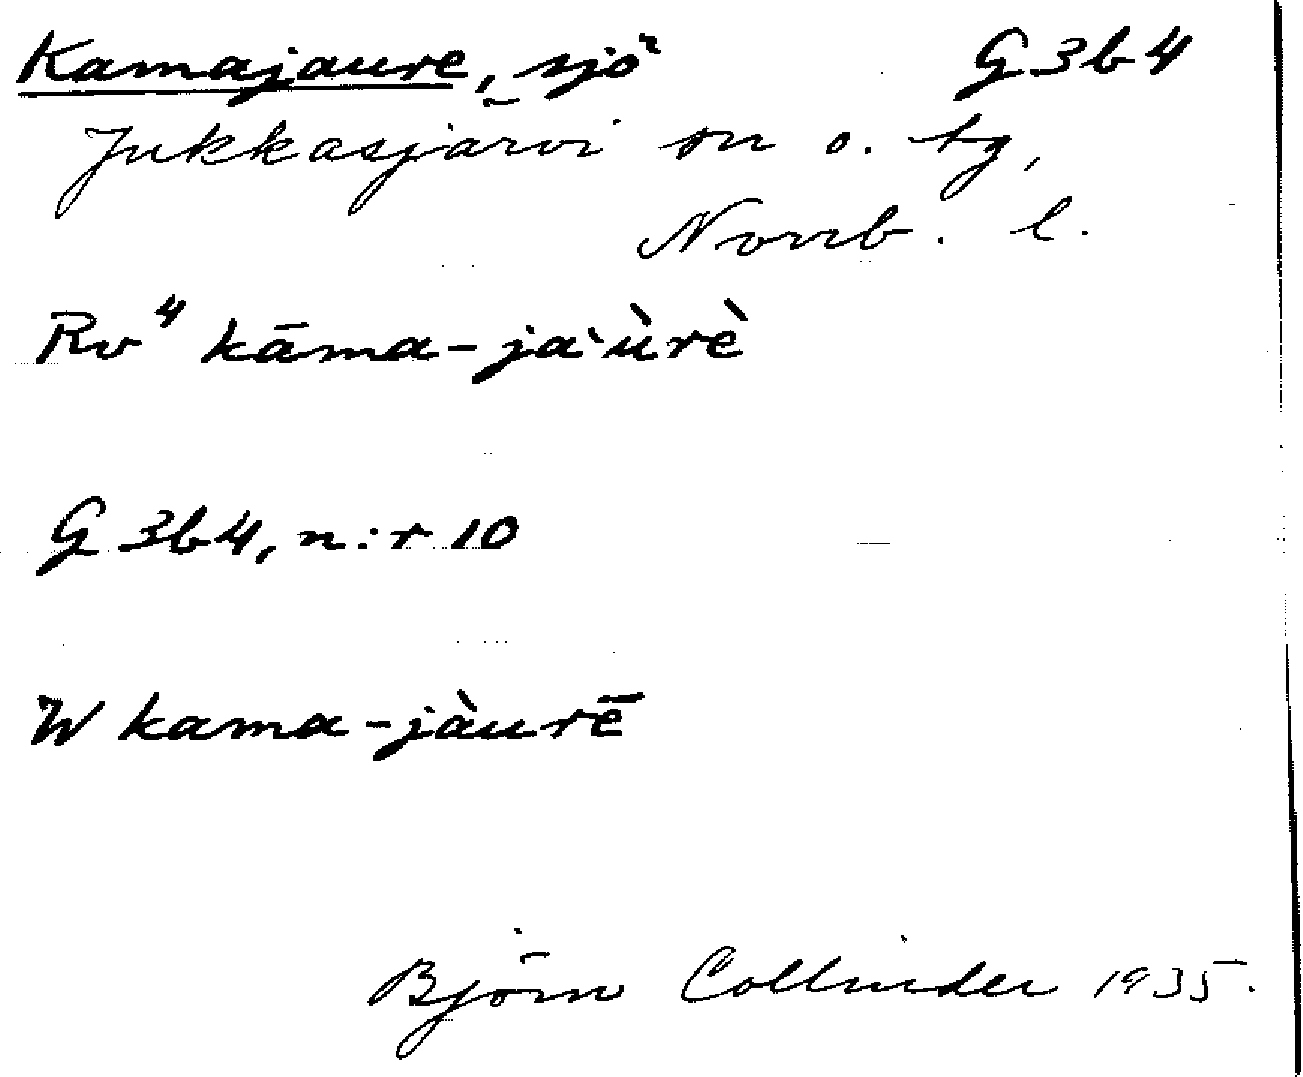 Kamajaure, sjö G 3b 4
Jukkasjärvi sn o. tg,
Norrb. l.
Rv⁴ kāma-jaˋùrè
G 3b4, n:r 10
W kama-jàurē
Björn Collinder 1935.